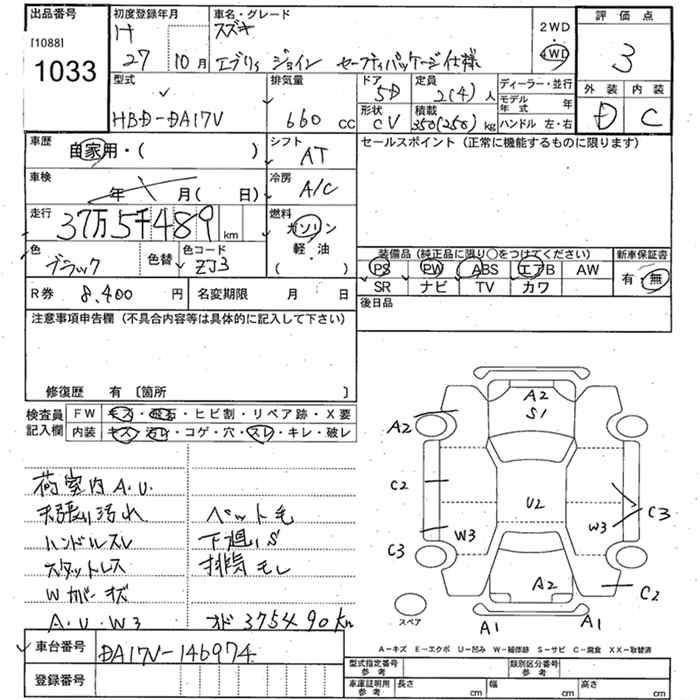 出品番号
[1088]
1033
初度登録年月
H
27 10月
車名・グレード
スズキ
エブリィ ジョイン セーフティパッケージ仕様
2WD
4WD
評価点
3
外装 内装
D C
型式
HBD-DA17V
排気量
660 cc
ドア
5D
定員
2(4)人
形状
CV
積載
350(250)kg
ディーラー・並行
モデル年式 年
ハンドル 左・右
車歴
自家用・( )
シフト
AT
車検
年 月(日)
冷房
A/C
走行
37万5千489 km
燃料
ガソリン
軽・油
( )
色
ブラック
色替
色コード
ZJ3
R券 8,400 円
名変期限 月 日
セールスポイント(正常に機能するものに限ります)
装備品(純正品に限り○をつけてください)
PS PW ABS エアB AW
SR ナビ TV カワ
新車保証書
有・無
後日品
注意事項申告欄(不具合内容等は具体的に記入して下さい)
修復歴 有 [箇所 ]
検査員記入欄
FW キズ・飛石・ヒビ割・リペア跡・X要
内装 キズ・汚レ・コゲ・穴・スレ・キレ・破レ
荷室内A.U.
天張り汚れ
ハンドルスレ
スタットレス
Wカバーキズ
A・U・W3
ペット毛
下廻りS
排気モレ
オド 375490km
A2
S1
A2
C2
W3
C3
U2
C3
W3
C2
A2
A1
A1
スペア
A-キズ E-エクボ U-凹み W-補修跡 S-サビ C-腐食 XX-取替済
車台番号 DA17V-146974
登録番号
型式指定番号 参考
類別区分番号 参考
車庫証明用 参考
長さ cm
幅 cm
高さ cm